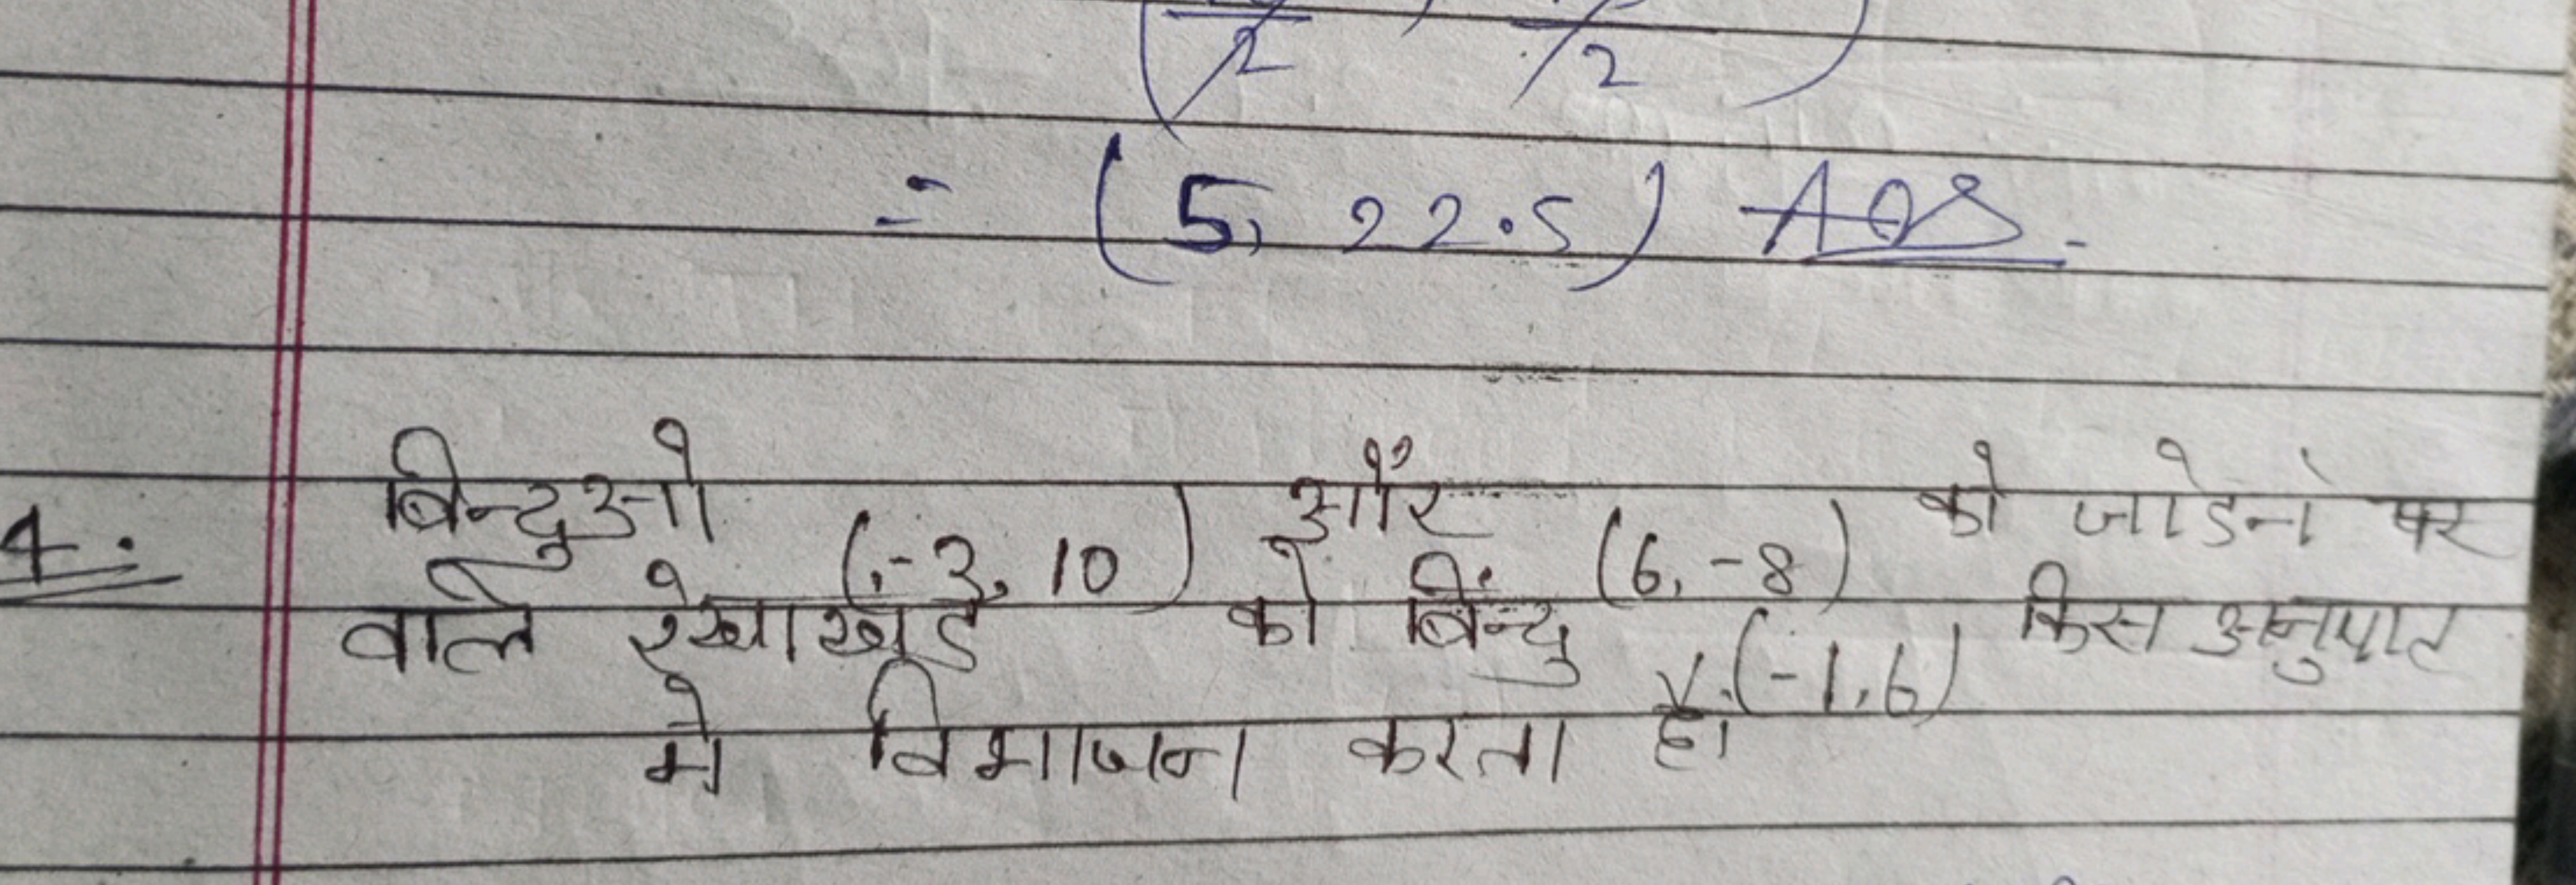 2 , 2
= (5, 22.5) Ans.
4. बिन्दुओ (-3, 10) और (6, -8) को जोडने पर
वाले रेखाखंड को बिंन्दु (-1, 6) किस अनुपात
मे विभाजन करता है।